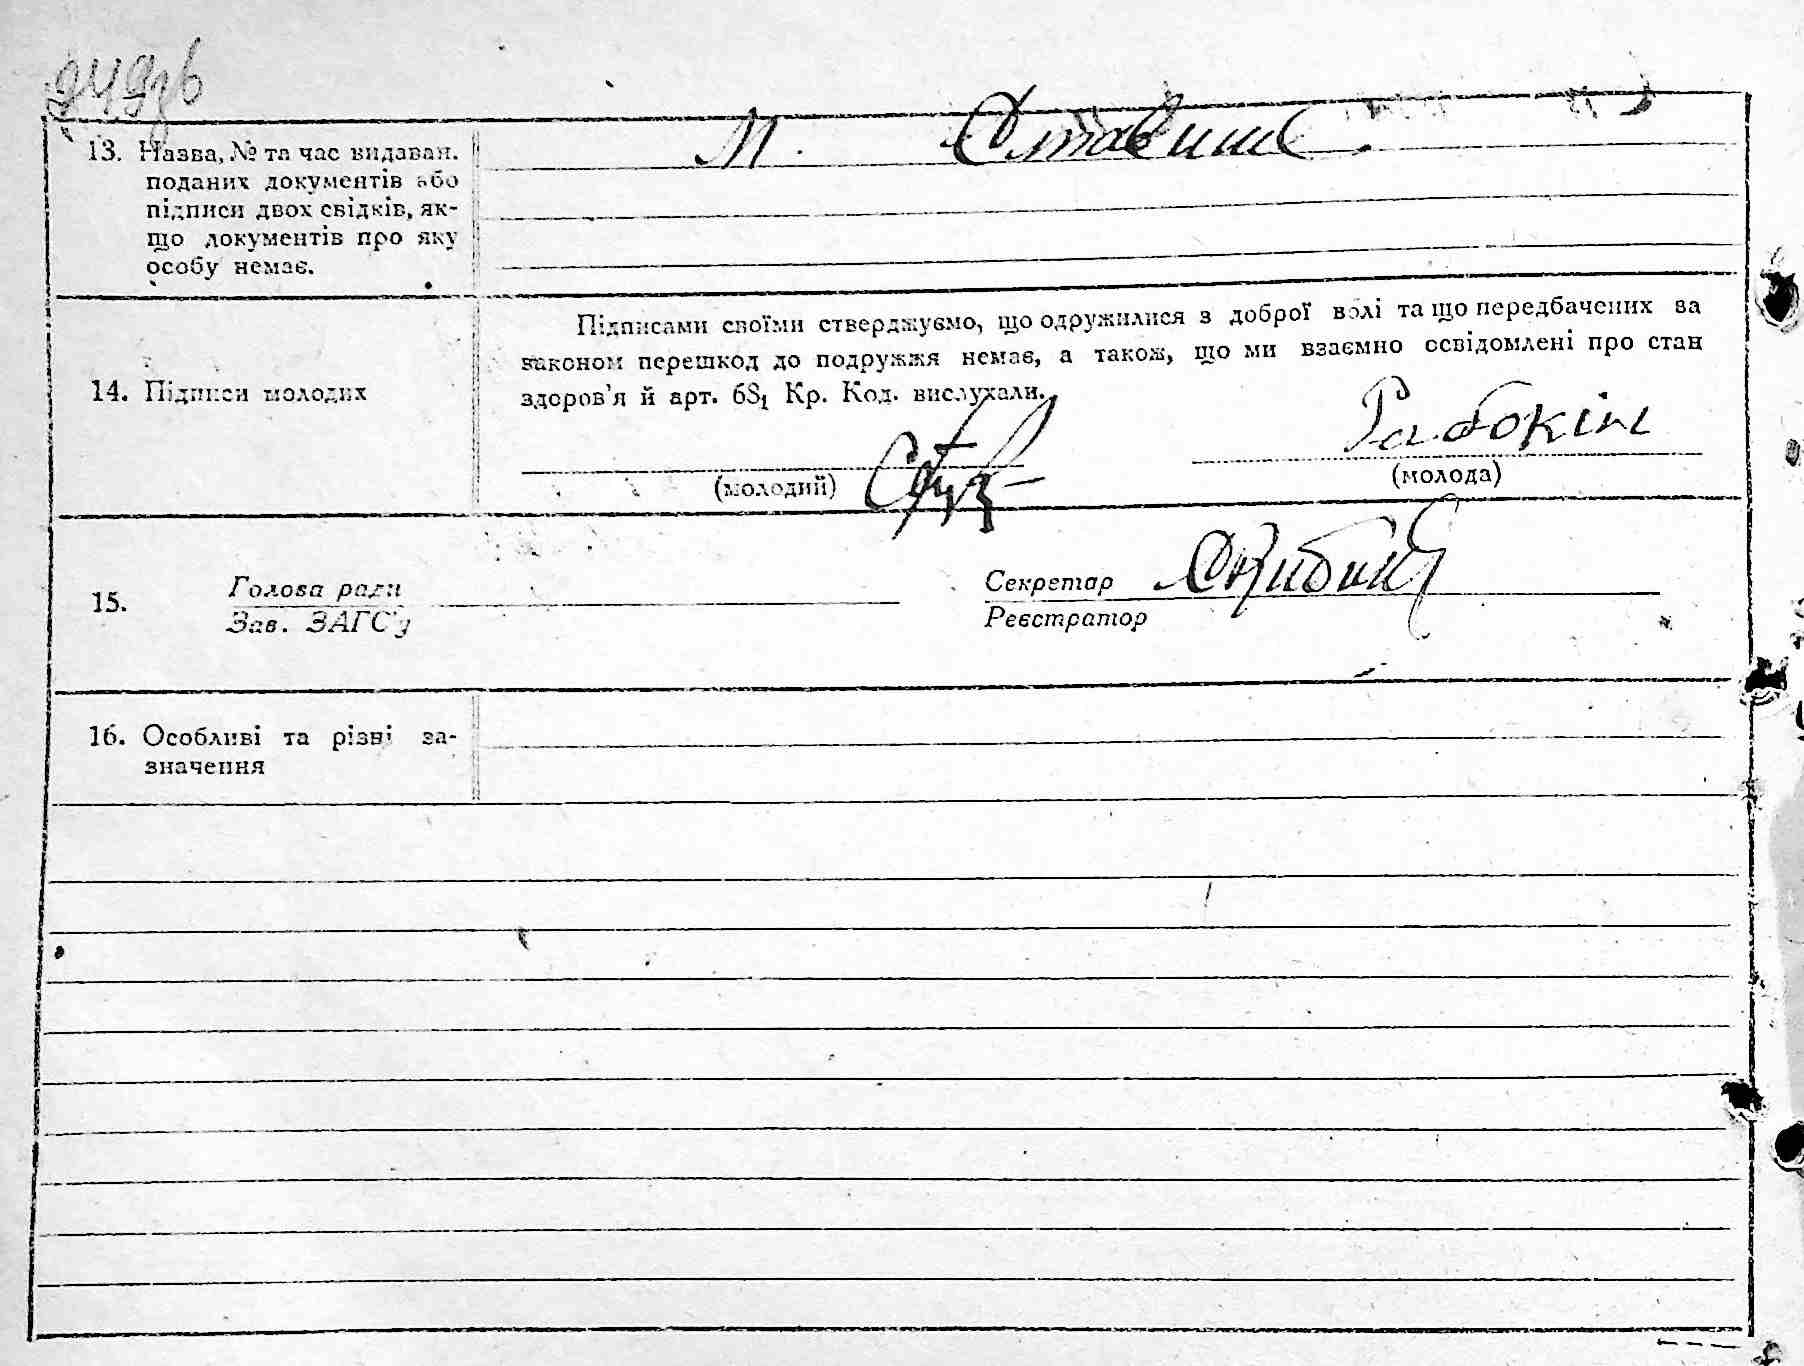 13. Назва, № та час видаван.
поданих документів або
підписи двох свідків, як-
що документів про яку
особу немає.
М. Ставише
Підписами своїми стверджуємо, що одружилися з доброї волі та що передбачених за
законом перешкод до подружжя немає, а також, що ми взаємно освідомлені про стан
здоров'я й арт. 68₁ Кр. Код. вислухали.
14. Підписи молодих
Рабокінь
(молодий)
(молода)
15.
Голова ради
Зав. ЗАГС'у
Секретар
Реєстратор
16. Особливі та різні за-
значення